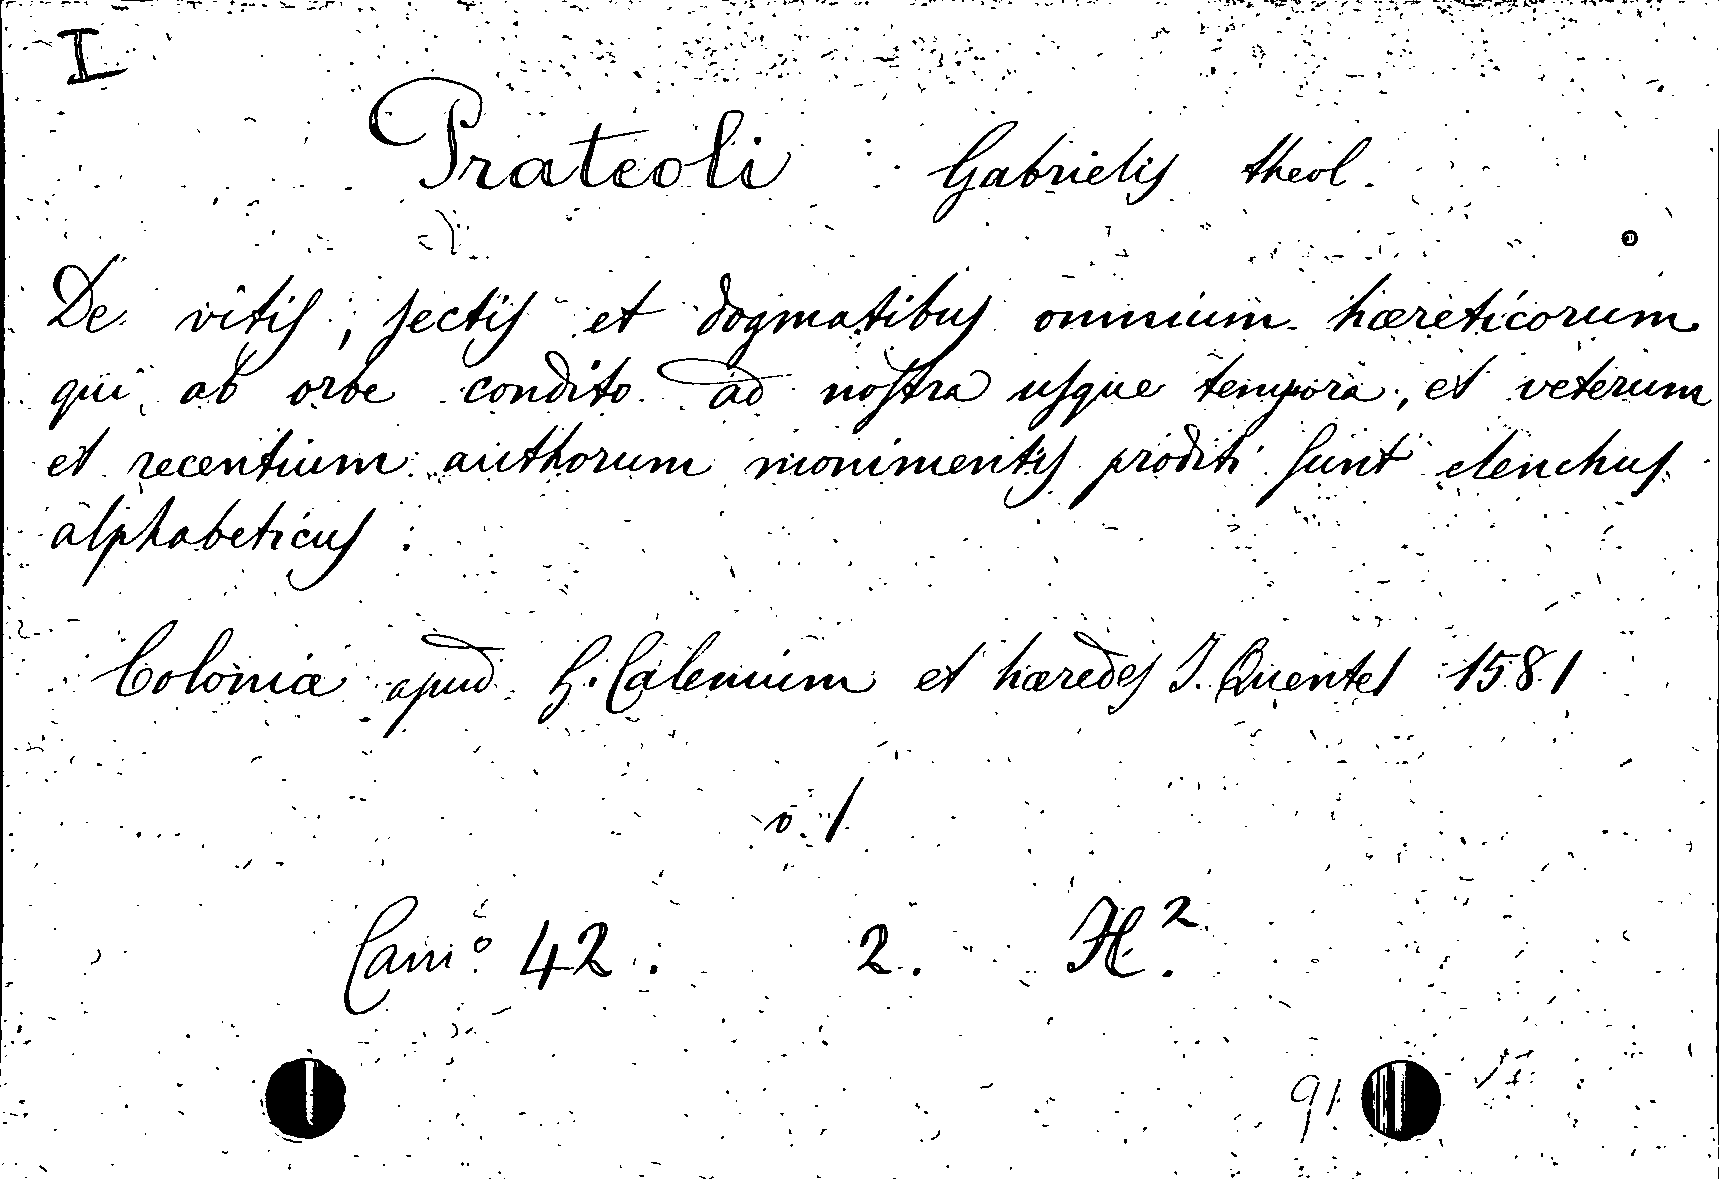 I
Prateoli Gabrielis theol.
De vitis, sectis et dogmatibus omnium hæreticorum
qui ab orbe condito ad nostra usque tempora, et veterum
et recentium authorum monimentis proditi sunt elenchus
alphabeticus :
Coloniæ apud G. Calenium et hæredes J. Quentel 1581
v. 1
Cam.º 42. 2. H.²
91.